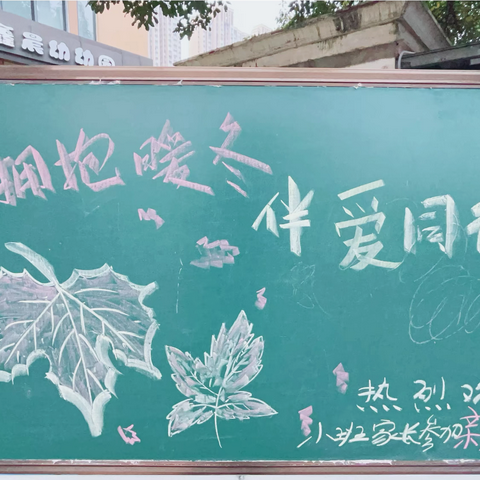 晨幼幼园
拥抱暖冬
伴爱同行
热烈欢
小班家长参加亲